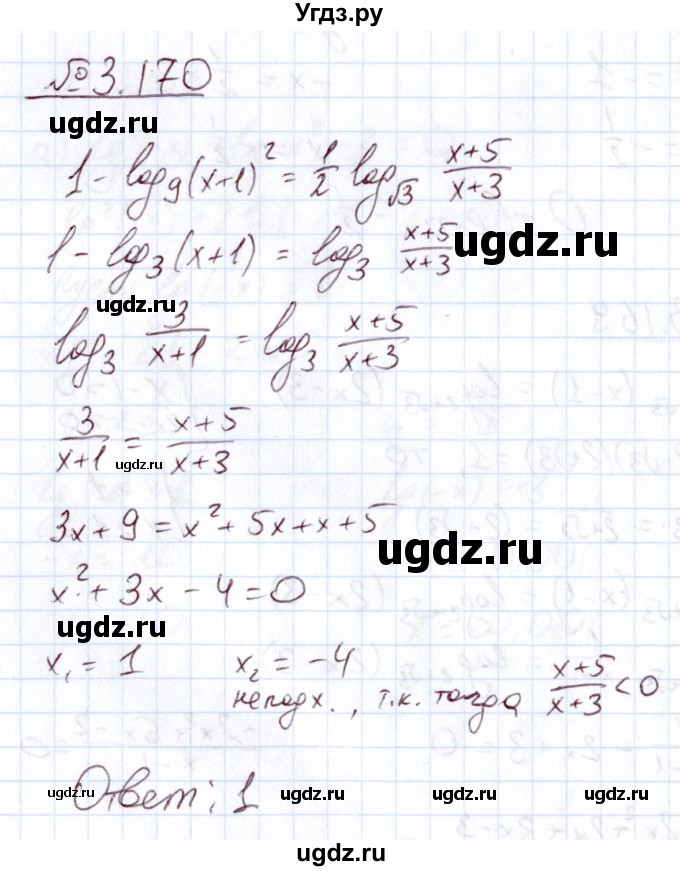 Угдз.ру
№ 3.170
ugdz.ru
1 - log₉(x+1)² = 1/2 log_√3 (x+5)/(x+3)
1 - log₃(x+1) = log₃ (x+5)/(x+3)
ugdz.ru
ugdz.ru
log₃ 3/(x+1) = log₃ (x+5)/(x+3)
3/(x+1) = (x+5)/(x+3)
ugdz.ru
3x + 9 = x² + 5x + x + 5
ugdz.ru
x² + 3x - 4 = 0
ugdz.ru
x₁ = 1 x₂ = -4
неподх., т.к. тогда (x+5)/(x+3) < 0
Ответ: 1
ugdz.ru ugdz.ru ugdz.ru ugdz.ru
ugdz.ru